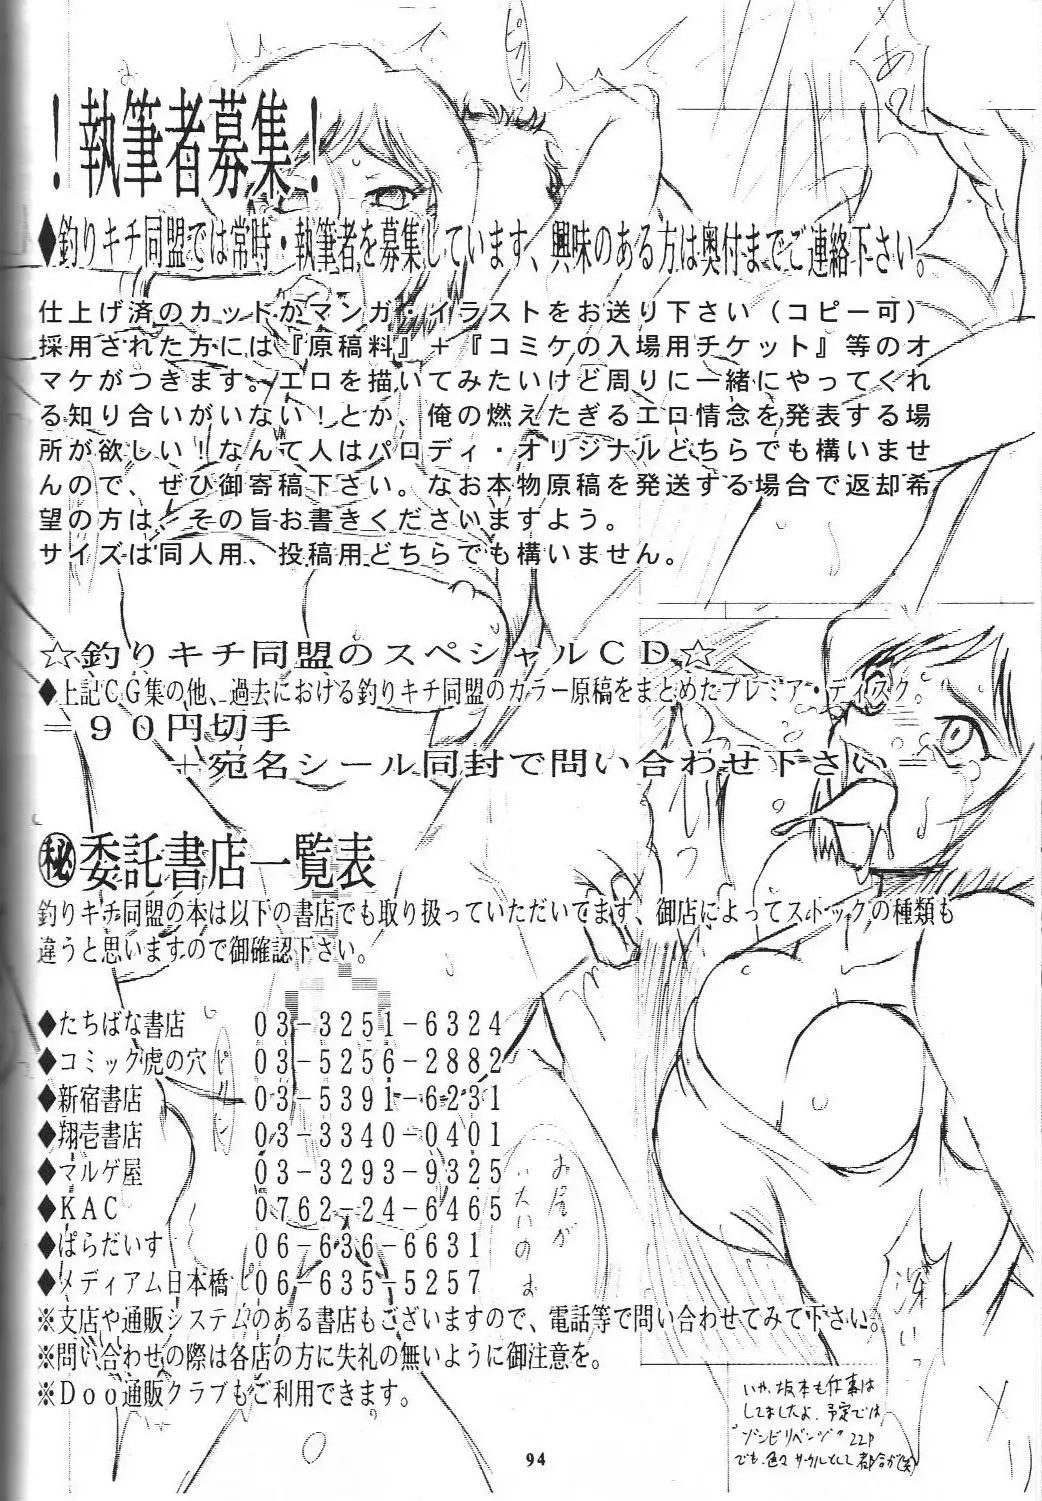 ！執筆者募集！
◆釣りキチ同盟では常時・執筆者を募集しています、興味のある方は奥付までご連絡下さい。
仕上げ済のカットかマンガ・イラストをお送り下さい（コピー可）
採用された方には『原稿料』＋『コミケの入場用チケット』等のオ
マケがつきます。エロを描いてみたいけど周りに一緒にやってくれ
る知り合いがいない！とか、俺の燃えたぎるエロ情念を発表する場
所が欲しい！なんて人はパロディ・オリジナルどちらでも構いませ
んので、ぜひ御寄稿下さい。なお本物原稿を発送する場合で返却希
望の方は、その旨お書きくださいますよう。
サイズは同人用、投稿用どちらでも構いません。
☆釣りキチ同盟のスペシャルＣＤ☆
◆上記ＣＧ集の他、過去における釣りキチ同盟のカラー原稿をまとめたプレミア・ディスク。
＝９０円切手
＋宛名シール同封で問い合わせ下さい＝
㊙委託書店一覧表
釣りキチ同盟の本は以下の書店でも取り扱っていただいてます、御店によってストックの種類も
違うと思いますので御確認下さい。
◆たちばな書店 ０３−３２５１−６３２４
◆コミック虎の穴 ０３−５２５６−２８８２
◆新宿書店 ０３−５３９１−６２３１
◆翔壱書店 ０３−３３４０−０４０１
◆マルゲ屋 ０３−３２９３−９３２５
◆ＫＡＣ ０７６２−２４−６４６５
◆ぱらだいす ０６−６３６−６６３１
◆メディアム日本橋 ０６−６３５−５２５７
※支店や通販システムのある書店もございますので、電話等で問い合わせてみて下さい。
※問い合わせの際は各店の方に失礼の無いように御注意を。
※Ｄｏｏ通販クラブもご利用できます。
いや、坂本も仕事は
してましたよ、予定では
"ゾンビリベンジ" 22P
でも色々サークルとして都合が(笑)
94